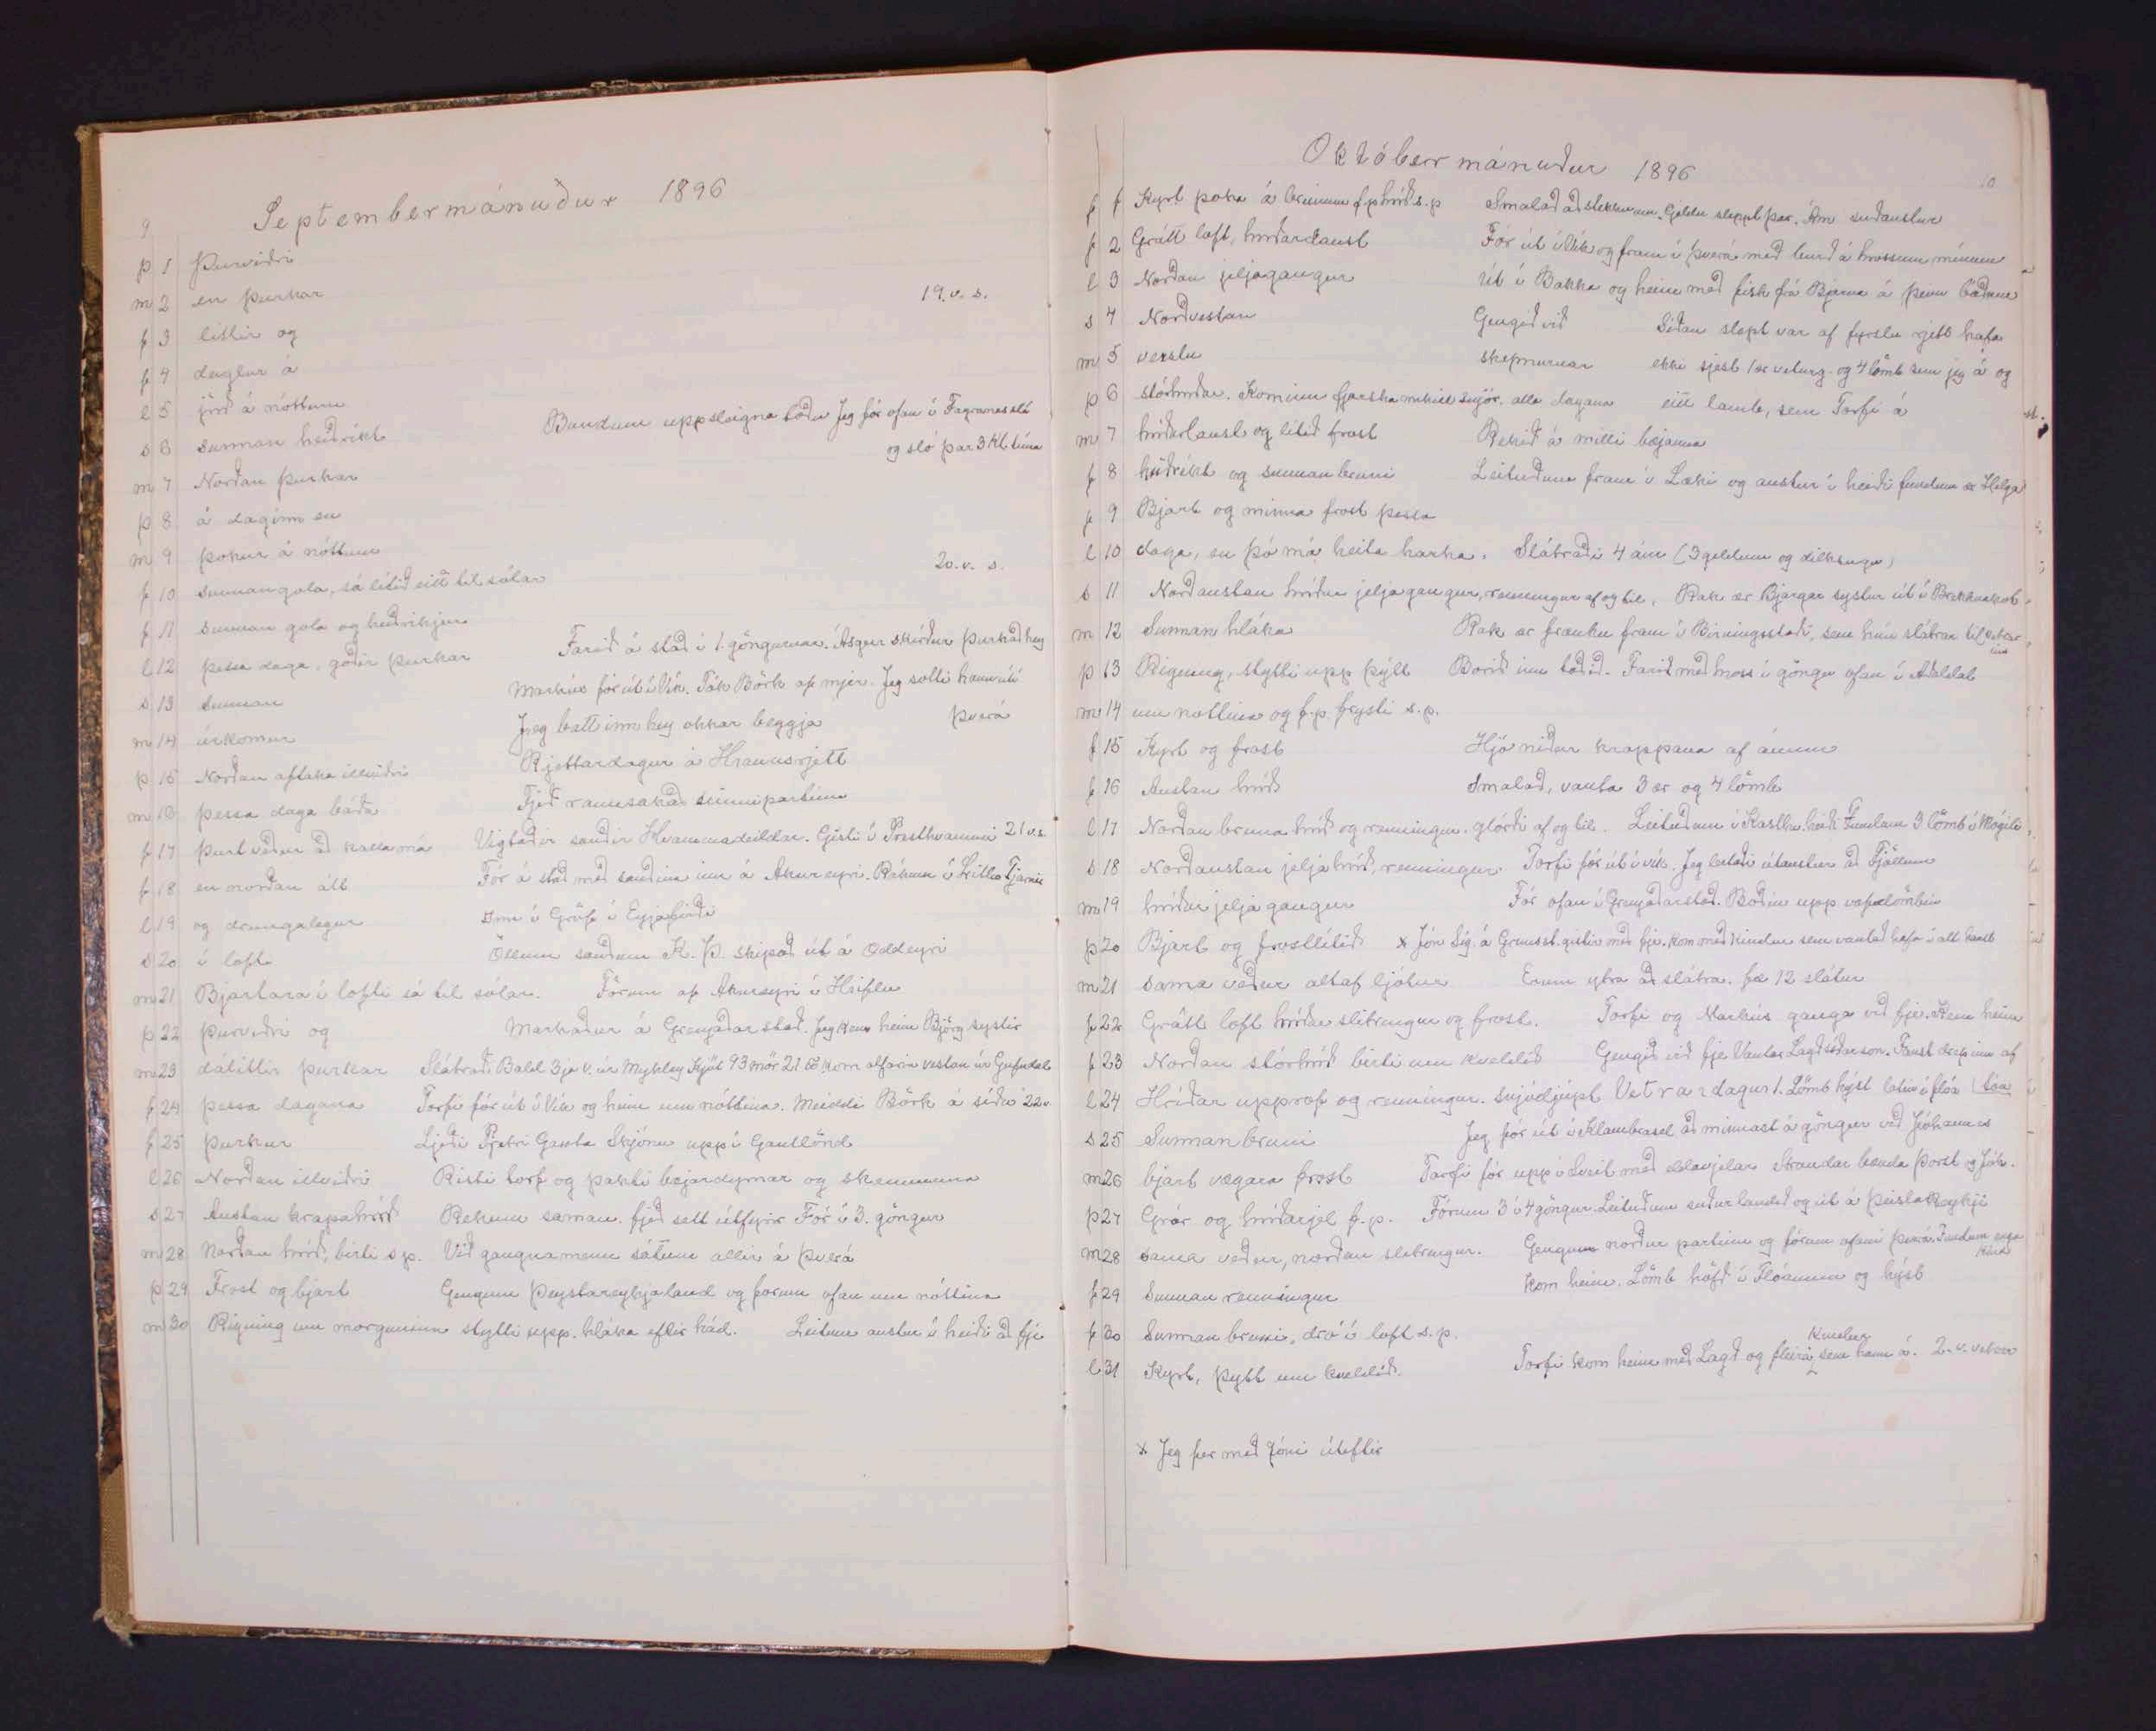 9
Septembermánuður 1896
þ 1 Þurviðri
m 2 en þurkar 19. v. s.
f 3 litlir og
f 4 daglur á
l 5 jörð á nóttum
s 6 sunnan heiðríkt Bundum uppslægna töðu Jeg fór ofan í Fagranesslá
og sló þar 3 kl. tíma
m 7 Norðan þurkar
þ 8 á daginn en
m 9 þokur á nóttum
f 10 sunnangola, sá lítið eitt til sólar 20. v. s.
f 11 sunnan gola og heiðríkjur
l 12 þessa daga, góðir þurkar Farið á stað í 1. göngurnar. Ásgeir skírður Þurkað hey
s 13 sunnan Markús fór út í Vík. Tók Börk af mjer. Jeg sótti hann út í
m 14 úrkomur Jeg batt inn hey okkar beggja Þverá
þ 15 Norðan aftaka illviðri Rjettardagur á Hraunsrjett
m 16 þessa daga báða Fjeð rannsakað seinnipartinn
f 17 þurt veður að kalla má Vigtaðir sauðir Hvammadeildar. Gisti í Presthvammi 21 v.s.
f 18 en norðan átt Fór á stað með sauðina inn á Akureyri. Rákum í Litlu Tjarnir
l 19 og drungalegur inn í Gröf í Eyjafirði
s 20 í lofti Öllum sauðum K. Þ. skipað út á Oddeyri
m 21 Bjartara í lofti sá til sólar. Fórum af Akureyri í Hriflu
þ 22 þurviðri og Markaður á Grenjaðarstað. Jeg kem heim Björg systir
m 23 dálitlir þurkar Slátrað. Bald 3ja v. úr Mykley Kjöt 93 mör 21 ℔ kom alfarin vestan úr Gufudal
f 24 þessa dagana Torfi fór út í Vík og heim um nóttina. Meiddi Börk á síðu 22 v
f 25 þurkur Ljeði Pjetri Gauta Skjónu upp í Gautlönd
l 26 Norðan illviðri Risti torf og þakti bæjardyrnar og skemmuna
s 27 Austan krapahríð Rekum saman. fjeð sett útfyrir Fór í 3. göngur
m 28 Norðan hríð, birti s.p. Við gangnamenn sátum allir á Þverá
þ 29 Frost og bjart Gengum Þeystareykjaland og fórum ofan um nóttina
m 30 Rigning um morguninn stytti upp. hláka eftir hád. Leitum austur í heiði að fje
10
Októbermánuður 1896
f 1 Kyrt þoka á brúnum f.p hríð s.p Smalað að stekknum. Geldu sleppt þar. Ám suðaustur
f 2 Grátt loft, hríðarlaust Fór út í Vík og fram í Þverá með burð á hrossum mínum
l 3 Norðan jeljagangur Út í Bakka og heim með fisk frá Bjarna á þeim báðum
s 4 Norðvestan Gengið við Síðan slept var af fyrstu rjett hafa
m 5 verstu skepnurnar ekki sjest 1 ær veturg. og 4 lömb sem jeg á og
þ 6 stórhríðar. Kominn fjarska mikill snjór, alla dagana eitt lamb, sem Torfi á
m 7 hríðarlaust og lítið frost Rekið á milli bæjanna
f 8 heiðríkt og sunnan bruni Leituðum fram í Læki og austur í heiði fundum ær Helga
f 9 Bjart og minna frost þessa
l 10 daga, en þó má heita harka. Slátraði 4 ám (3 geldum og dilksugu)
s 11 Norðaustan hríðar jeljagangur, renningur af og til. Rak ær Bjargar systur út í Brekknakot
m 12 Sunnan hláka Rak ær frænku fram í Birningsstaði, sem hún slátrar til
þ 13 Rigning, stytti upp þýtt Borið inn taðið. Farið með hross í göngu ofan í Aðaldal
m 14 um nóttina og f.p. frysti s.p.
f 15 Kyrt og frost Hjó niður kroppana af ánum
f 16 Austan hríð Smalað, vanta 3 ær og 4 lömb
l 17 Norðan bruna hríð og renningur. glórði af og til. Leituðum í Kasthv.heiði Fundum 3 lömb í Mógili
s 18 Norðaustan jelja hríð, renningur Torfi fór út í vík. Jeg leitaði útaustur að Fjöllum
m 19 hríðarjelja gangur Fór ofan í Grenjaðarstað. Boðin upp vafalömbin
þ 20 Bjart og frostlítið x Jón Sig. á Grímsst. gistir með fje. Kom með kindur sem vantað hafa í alt haust
m 21 sama veður altaf ljótur Erum ytra að slátra. fæ 12 slátur
f 22 Grátt loft hríðar slitringur og frost. Torfi og Markús ganga við fje. Kem heim
f 23 Norðan stórhríð birti um kveldið Gengið við fje Vantar Lagðsíðarson. Fanst drepinn af
l 24 Hríðar upprof og renningur. snjódjúpt Vetrardagur 1. Lömb hýst látin í flóa (tóu
s 25 Sunnan bruni Jeg fór út í Klambrasel að minnast á göngur við Jóhannes
m 26 bjart vægara frost Torfi fór upp í Sveit með eldavjelar Strandar bænda Þorst og Jóh.
þ 27 Grár og hríðarjel f.p. Fórum 3 í 4 göngur. Leituðum suðurlandið og út á Þeistareykji
m 28 sama veður, norðan slitringur. Gengum norður partinn og fórum ofaní Þverá. Fundum enga
kind
f 29 Sunnan renningur Kom heim. Lömb höfð í Flóanum og hýst
f 30 Sunnan bruni, dró í loft s.p.
l 31 Kyrt, þytt um kveldið. Torfi kom heim með Lagð og fleira sem hann á. 2. v. vetrar
x Jeg fer með Jóni úteftir